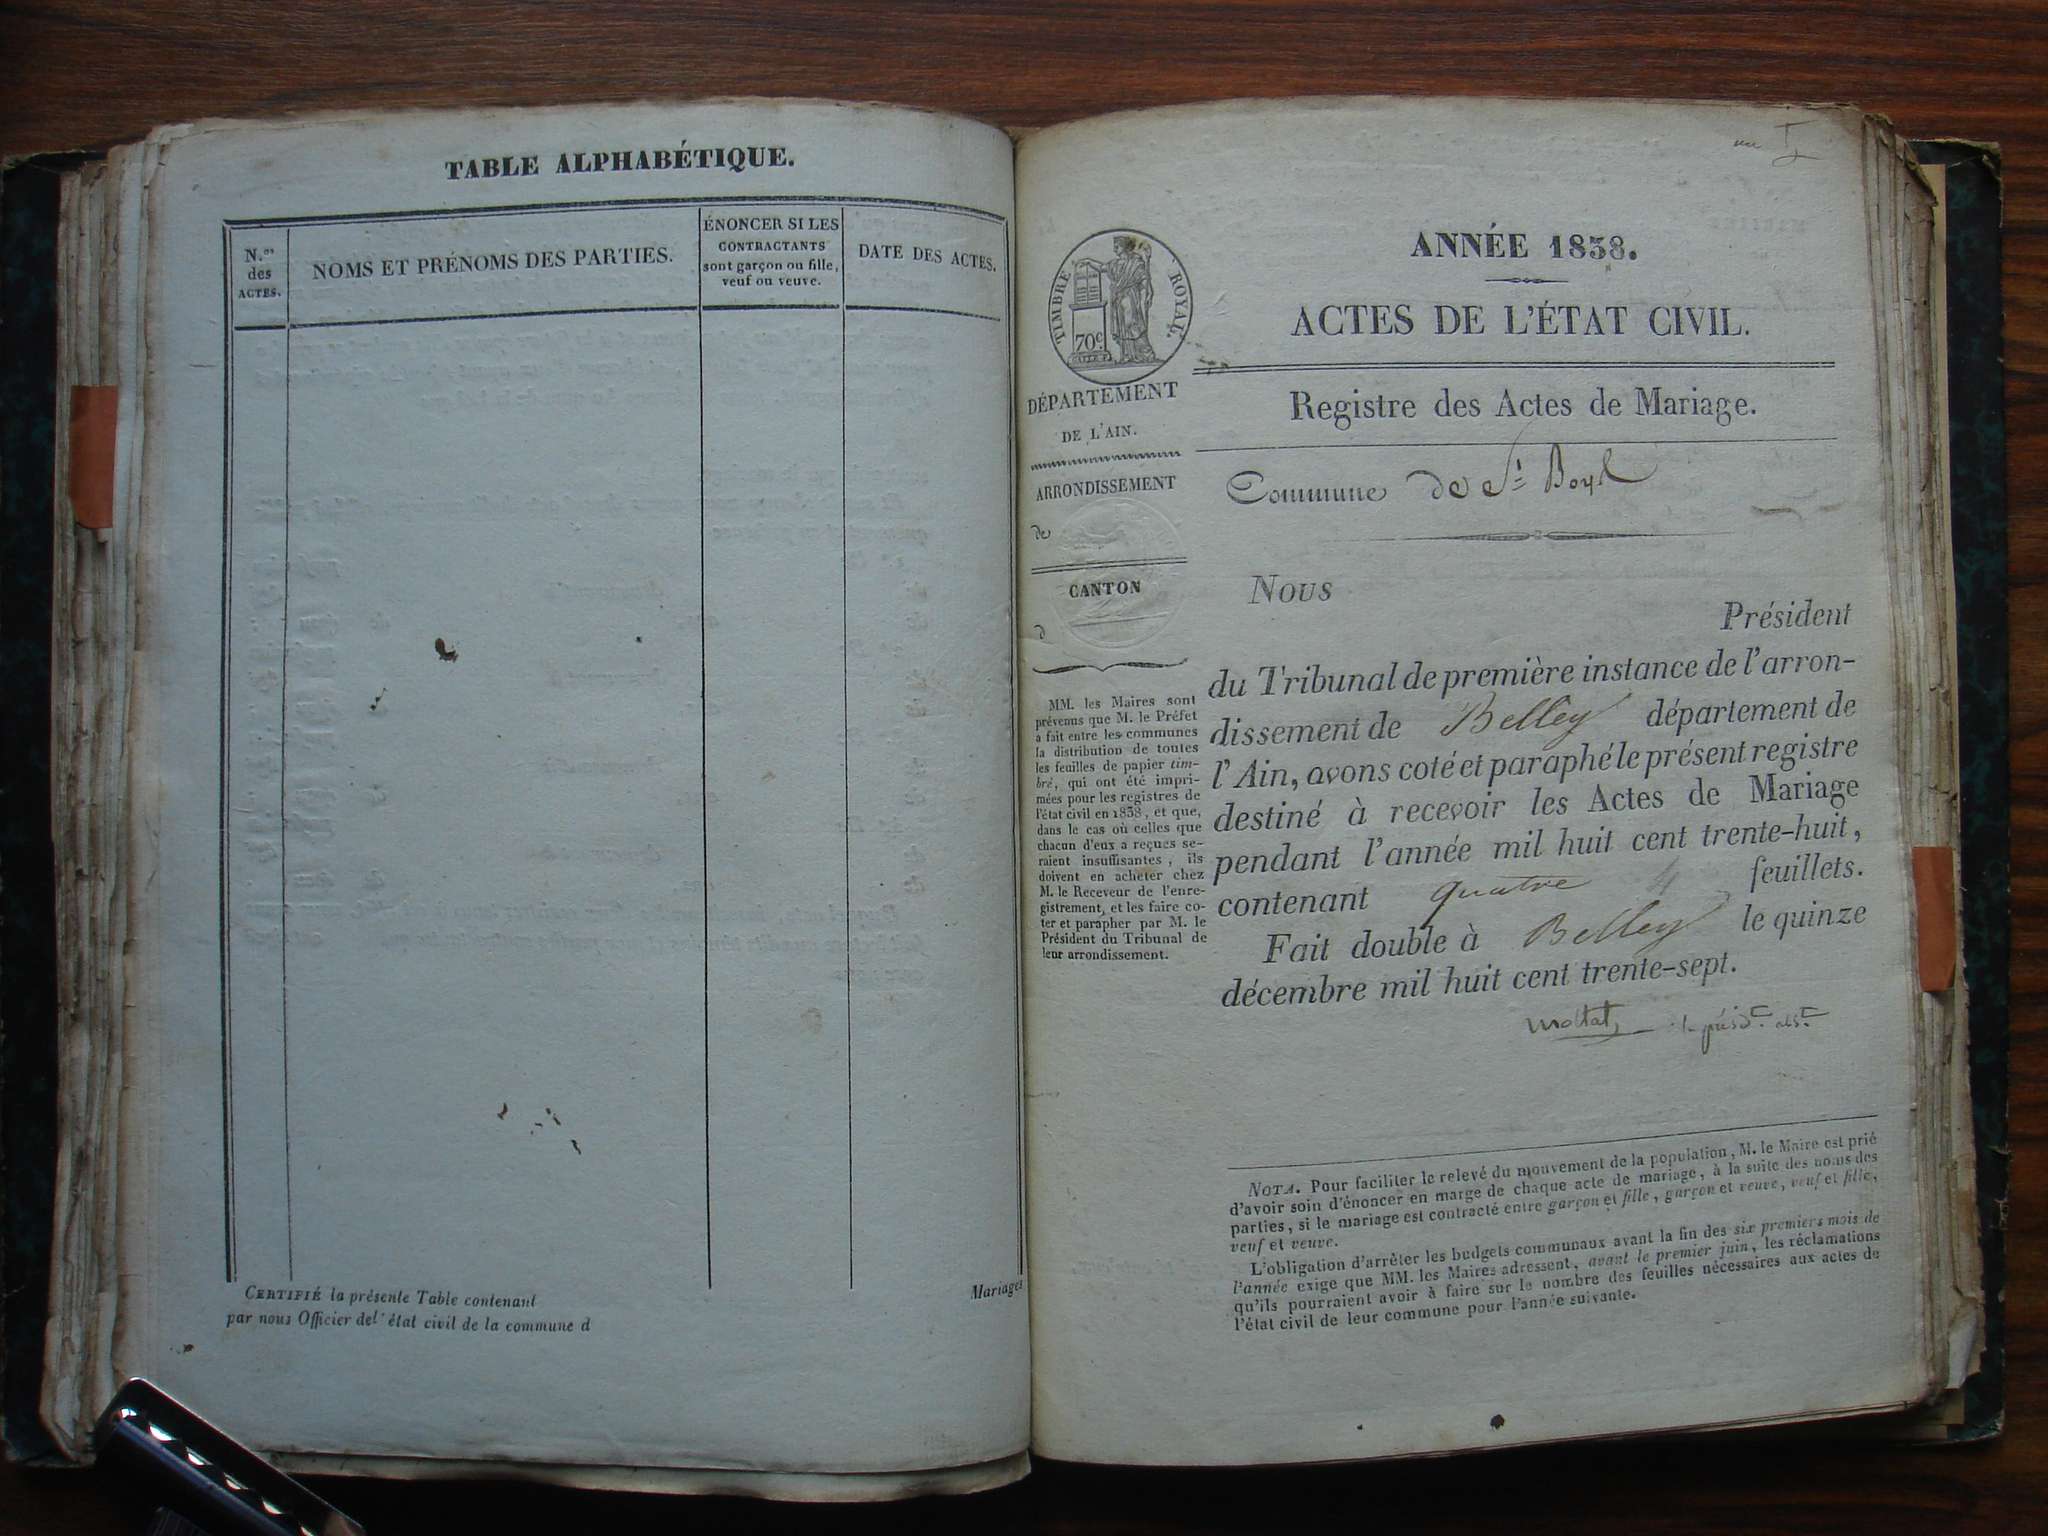 TABLE ALPHABÉTIQUE.
N.os
des
ACTES.
NOMS ET PRÉNOMS DES PARTIES.
ÉNONCER SI LES
CONTRACTANTS
sont garçon ou fille,
veuf ou veuve.
DATE DES ACTES.
CERTIFIÉ la présente Table contenant
par nous Officier del' état civil de la commune d
Mariages
un
TIMBRE ROYAL.
70c
DÉPARTEMENT
DE L'AIN.
ARRONDISSEMENT
de
CANTON
d
MM. les Maires sont
prévenus que M. le Préfet
a fait entre les communes
la distribution de toutes
les feuilles de papier tim-
bré, qui ont été impri-
mées pour les registres de
l'état civil en 1838, et que,
dans le cas où celles que
chacun d'eux a reçues se-
raient insuffisantes, ils
doivent en acheter chez
M. le Receveur de l'enre-
gistrement, et les faire co-
ter et parapher par M. le
Président du Tribunal de
leur arrondissement.
ANNÉE 1838.
ACTES DE L'ÉTAT CIVIL.
Registre des Actes de Mariage.
Commune de St
Nous
Président
du Tribunal de première instance de l'arron-
dissement de Belley département de
l'Ain, avons coté et paraphé le présent registre
destiné à recevoir les Actes de Mariage
pendant l'année mil huit cent trente-huit,
contenant quatre 4 feuillets.
Fait double à Belley le quinze
décembre mil huit cent trente-sept.
NOTA. Pour faciliter le relevé du mouvement de la population, M. le Maire est prié
d'avoir soin d'énoncer en marge de chaque acte de mariage, à la suite des noms des
parties, si le mariage est contracté entre garçon et fille, garçon et veuve, veuf et fille,
veuf et veuve.
L'obligation d'arrêter les budgets communaux avant la fin des six premiers mois de
l'année exige que MM. les Maires adressent, avant le premier juin, les réclamations
qu'ils pourraient avoir à faire sur le nombre des feuilles nécessaires aux actes de
l'état civil de leur commune pour l'année suivante.